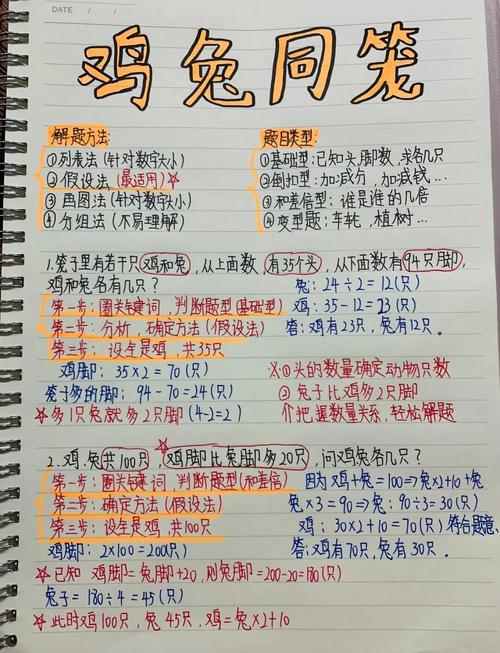 DATE / /
鸡兔同笼
解题方法:
①列表法(针对数字大小)
②假设法(最适用)☆
③画图法(针对数字小)
④分组法(不易理解)
题目类型:
①基础型:已知头,脚数,求各几只
②倒扣型:加减分,加减钱...
③和差倍型:谁是谁的几倍
④变型题:车轮,植树...
1.笼子里有若干只鸡和兔,从上面数,有35个头,从下面数有94只脚,
鸡和兔各有几只?
第一步:圈关键词,判断题型(基础型)
第二步:分析,确定方法(假设法)
第三步:设全是鸡,共35只
鸡脚:35×2=70(只)
笼子多的脚:94-70=24(只)
☆多1只兔就多2只脚(4-2=2)
兔:24÷2=12(只)
鸡:35-12=23(只)
答:鸡有23只,兔有12只。
※①头的数量确定动物只数
②兔子比鸡多2只脚
个把握数量关系,轻松解题
2.鸡.兔共100只,鸡脚比兔脚多20只,问鸡兔各几只?
第一步:圈关键词,判断题型(和差倍)
第二步:确定方法(假设法)
第三步:设全是鸡,共100只
鸡脚:2×100=200(只)
☆已知 鸡脚=兔脚+20,则兔脚=200-20=180(只)
兔子=180÷4=45(只)
☆此时鸡100只,兔45只,鸡=兔×2+10
因为鸡+兔=100⇒兔×2+10+兔
兔×3=90⇒兔:90÷3=30(只)
鸡:30×2+10=70(只) 符合题意
答:鸡有70只,兔有30只.